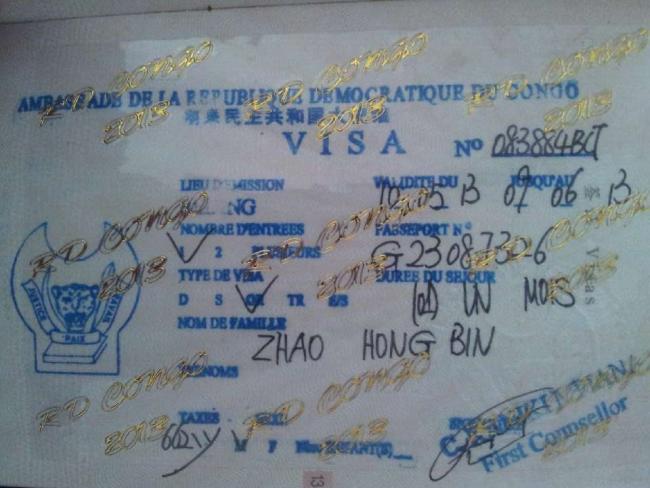 AMBASSADE DE LA REPUBLIQUE DEMOCRATIQUE DU CONGO
刚果民主共和国
VISA
No 083884BCT
LIEU D'EMISSION
VALIDITE DU JUSQU'AU
13 07 06 13
NOMBRE D'ENTREES
PASSEPORT N°
1 2 PLUSIEURS
G23087326
TYPE DE VISA
DUREE DU SEJOUR
D S OR TR S/S
(01) UN MOIS
NOM DE FAMILLE
ZHAO HONG BIN
PRENOMS
JUSTICE
PAIX
TAXES
M F
First Counsellor
Visas
13
RD CONGO
2013
RD CONGO
2013
RD CONGO
2013
RD CONGO
2013
RD CONGO
2013
RD CONGO
2013
RD CONGO
2013
RD CONGO
2013
RD CONGO
2013